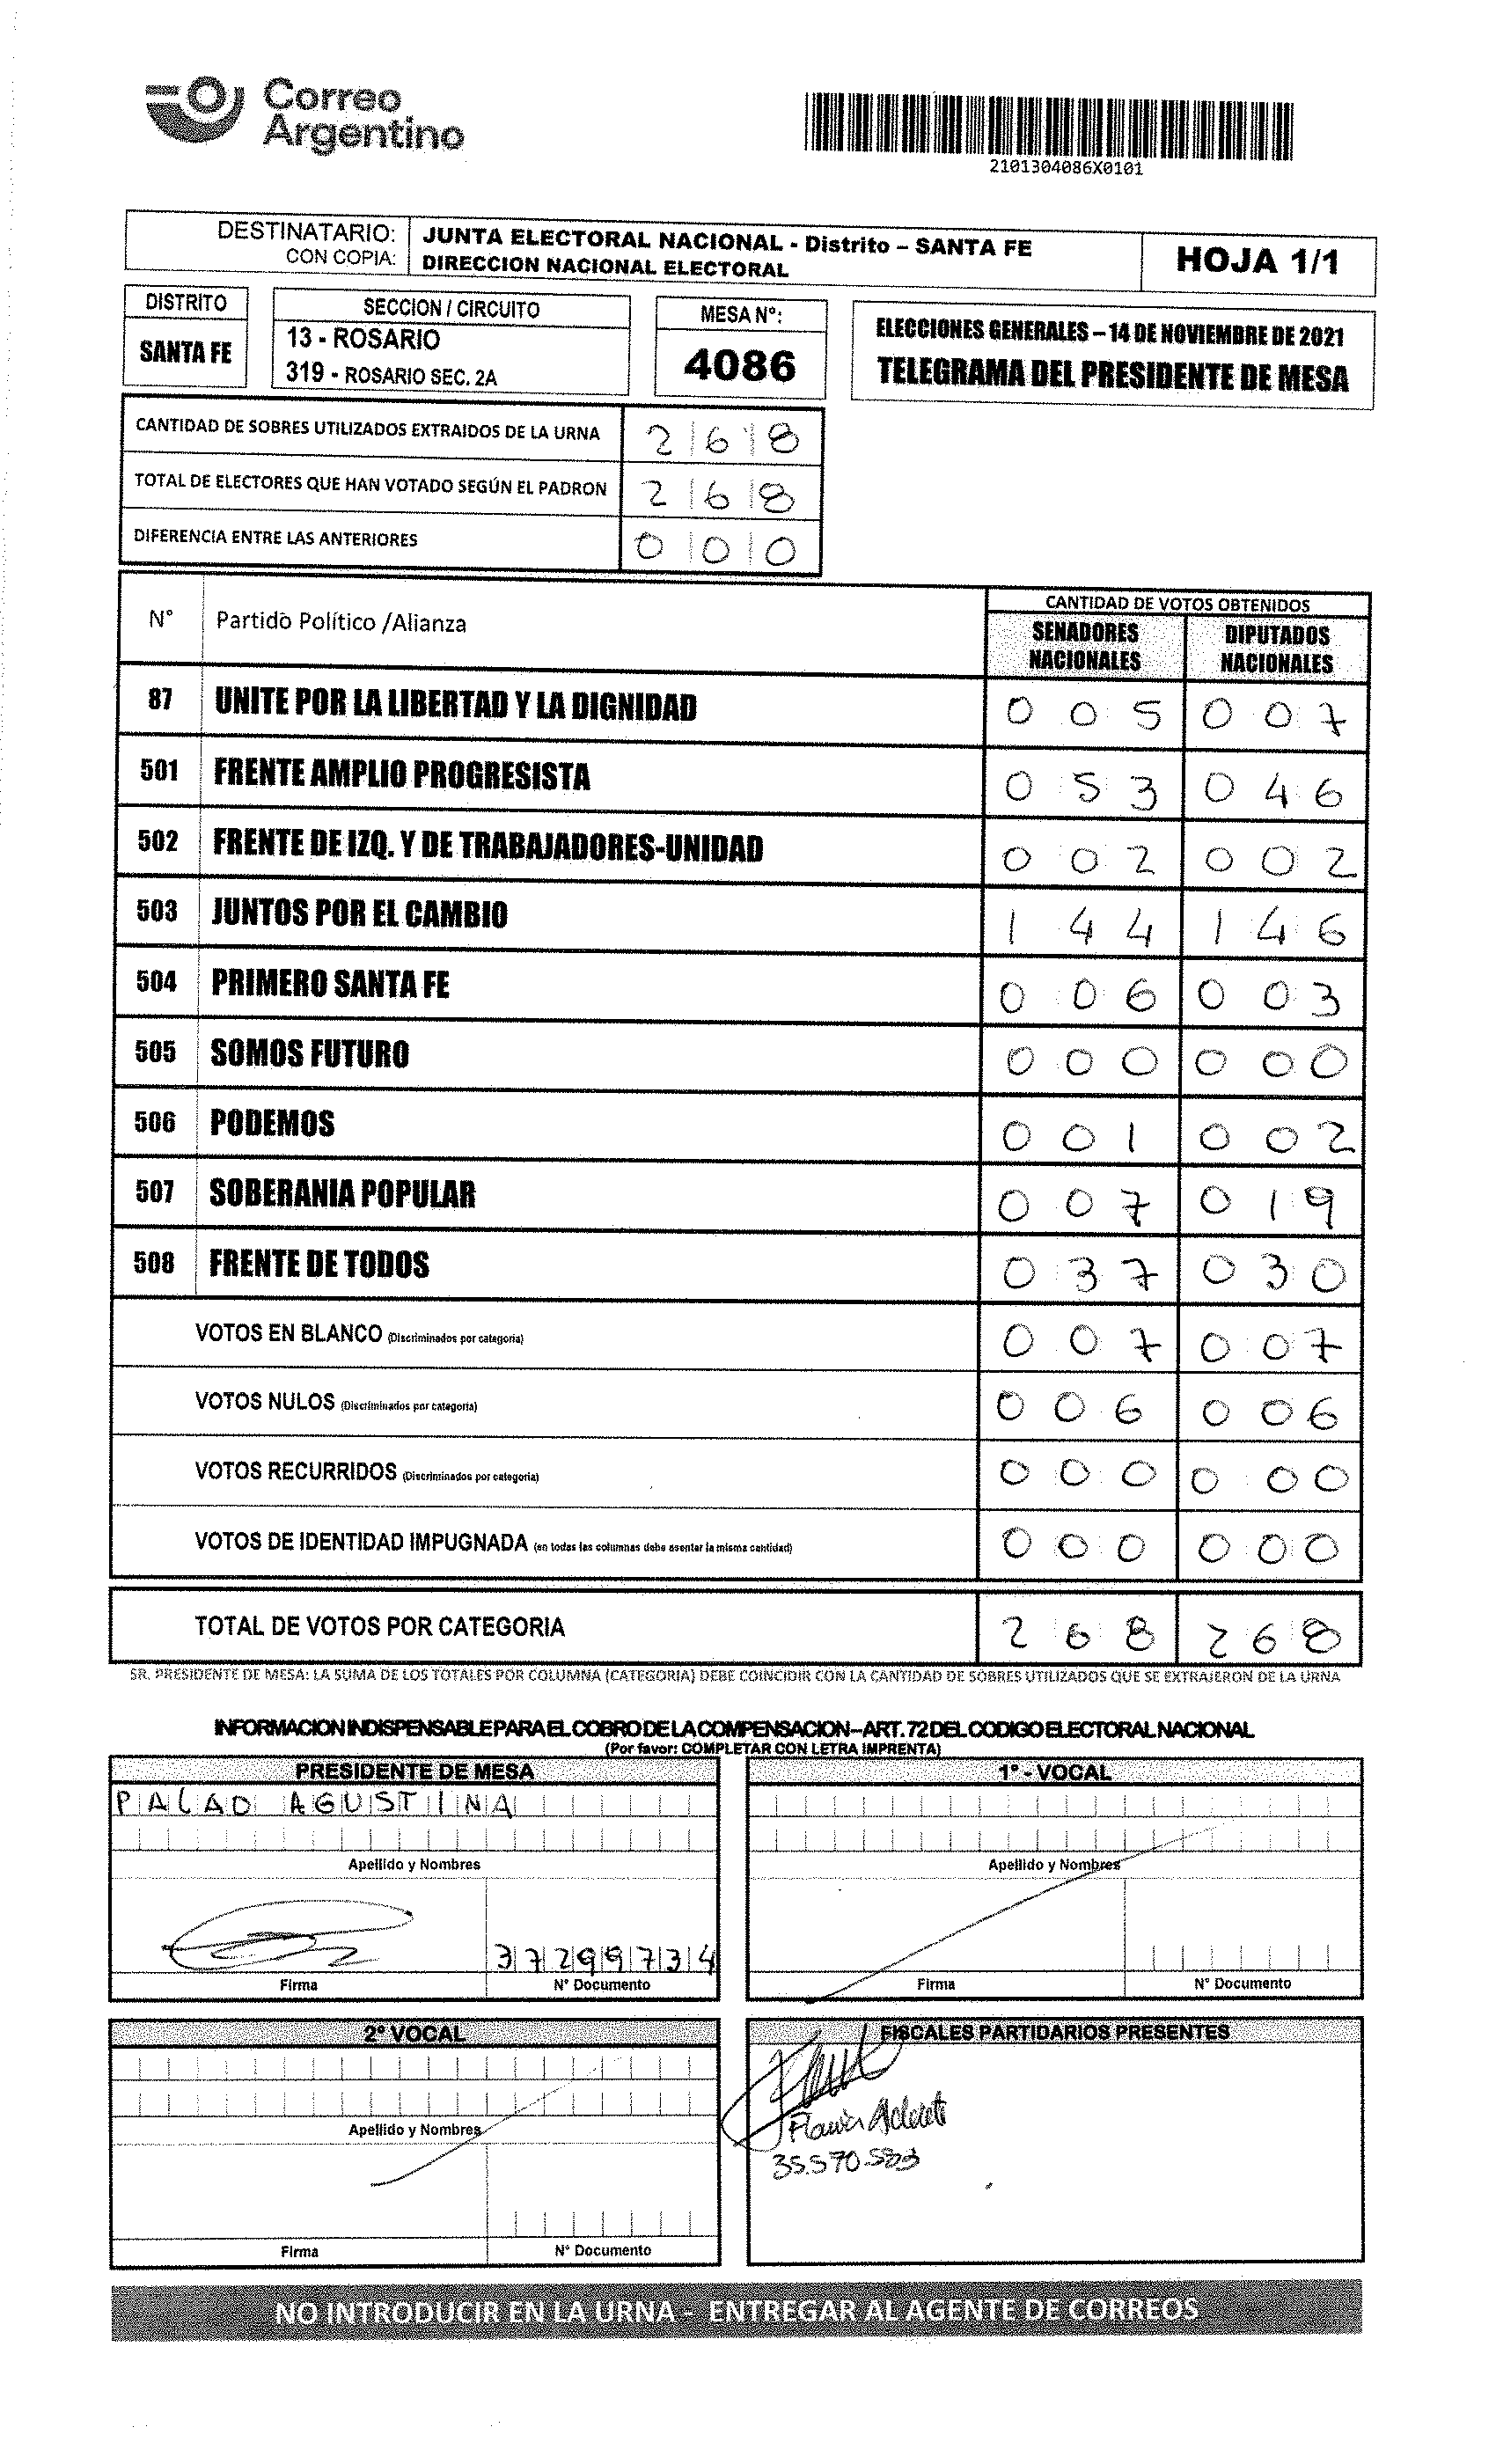 Correo
Argentino
2101304086X0101
DESTINATARIO: JUNTA ELECTORAL NACIONAL - Distrito – SANTA FE HOJA 1/1
CON COPIA: DIRECCION NACIONAL ELECTORAL
DISTRITO SECCION / CIRCUITO MESA N°:
SANTA FE 13 - ROSARIO 4086
319 - ROSARIO SEC. 2A
ELECCIONES GENERALES – 14 DE NOVIEMBRE DE 2021
TELEGRAMA DEL PRESIDENTE DE MESA
CANTIDAD DE SOBRES UTILIZADOS EXTRAIDOS DE LA URNA 2 6 8
TOTAL DE ELECTORES QUE HAN VOTADO SEGÚN EL PADRON 2 6 8
DIFERENCIA ENTRE LAS ANTERIORES 0 0 0
N° Partido Político /Alianza CANTIDAD DE VOTOS OBTENIDOS
SENADORES NACIONALES DIPUTADOS NACIONALES
87 UNITE POR LA LIBERTAD Y LA DIGNIDAD 0 0 5 0 0 7
501 FRENTE AMPLIO PROGRESISTA 0 5 3 0 4 6
502 FRENTE DE IZQ. Y DE TRABAJADORES-UNIDAD 0 0 2 0 0 2
503 JUNTOS POR EL CAMBIO 1 4 4 1 4 6
504 PRIMERO SANTA FE 0 0 6 0 0 3
505 SOMOS FUTURO 0 0 0 0 0 0
506 PODEMOS 0 0 1 0 0 2
507 SOBERANIA POPULAR 0 0 7 0 1 9
508 FRENTE DE TODOS 0 3 7 0 3 0
VOTOS EN BLANCO (Discriminados por categoria) 0 0 7 0 0 7
VOTOS NULOS (Discriminados por categoria) 0 0 6 0 0 6
VOTOS RECURRIDOS (Discriminados por categoria) 0 0 0 0 0 0
VOTOS DE IDENTIDAD IMPUGNADA (en todas las columnas debe asentar la misma cantidad) 0 0 0 0 0 0
TOTAL DE VOTOS POR CATEGORIA 2 6 8 2 6 8
SR. PRESIDENTE DE MESA: LA SUMA DE LOS TOTALES POR COLUMNA (CATEGORIA) DEBE COINCIDIR CON LA CANTIDAD DE SOBRES UTILIZADOS QUE SE EXTRAJERON DE LA URNA
INFORMACION INDISPENSABLE PARA EL COBRO DE LA COMPENSACION – ART. 72 DEL CODIGO ELECTORAL NACIONAL
(Por favor: COMPLETAR CON LETRA IMPRENTA)
PRESIDENTE DE MESA 1° - VOCAL
PALAO AGUSTINA
Apellido y Nombres Apellido y Nombres
37299734
Firma N° Documento Firma N° Documento
2° VOCAL FISCALES PARTIDARIOS PRESENTES
Apellido y Nombres
35.570.583
Firma N° Documento
NO INTRODUCIR EN LA URNA - ENTREGAR AL AGENTE DE CORREOS